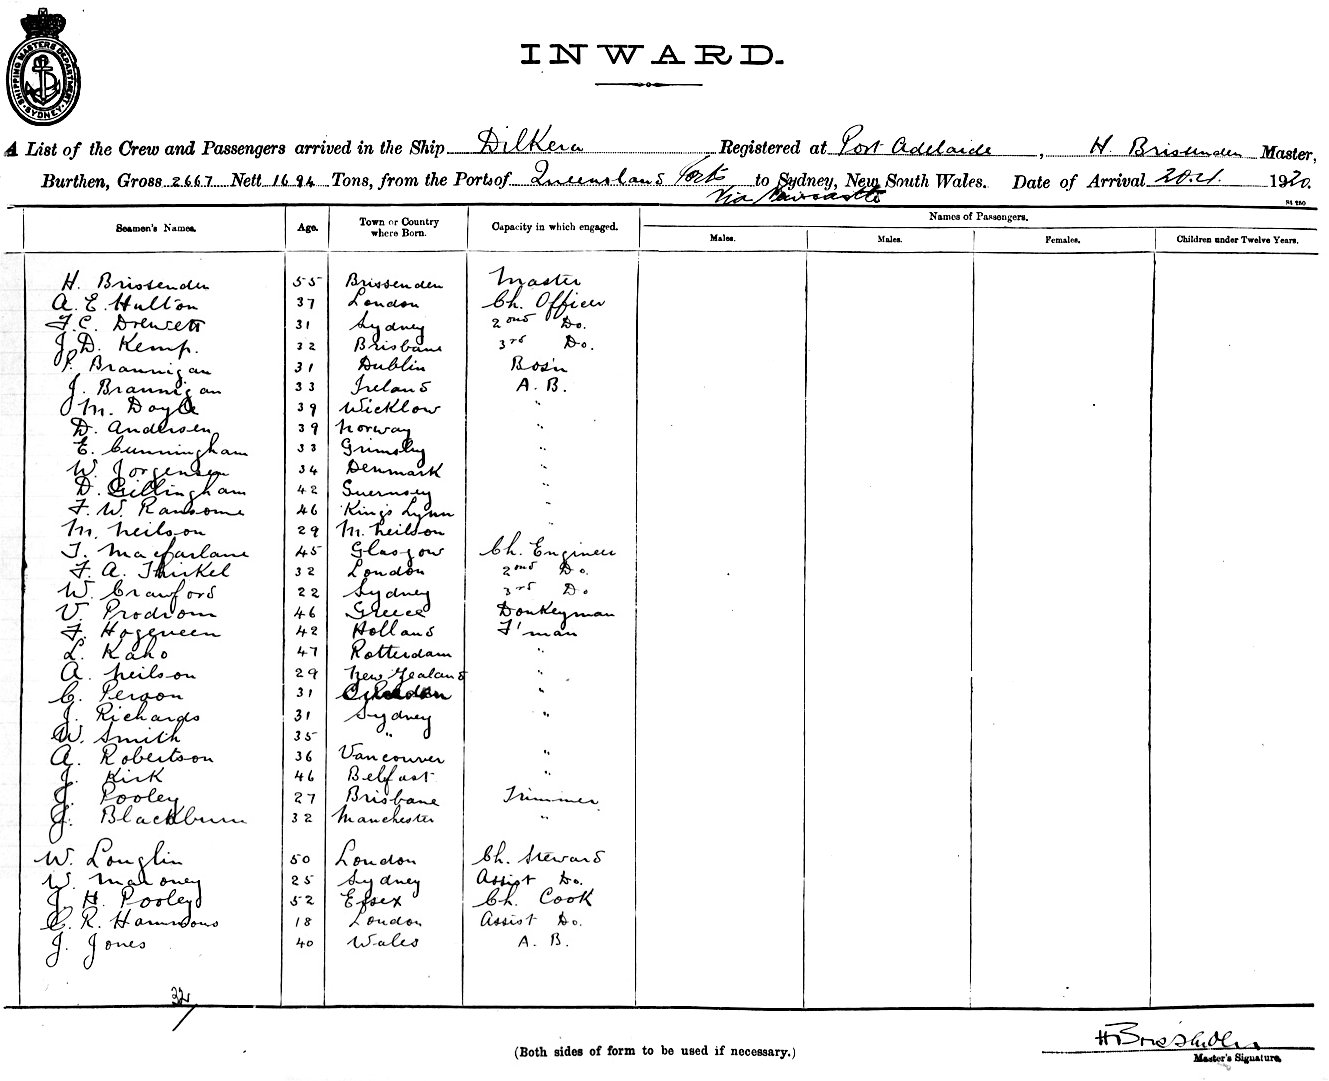 SHIPPING MASTERS DEPARTMENT SYDNEY
INWARD.
A List of the Crew and Passengers arrived in the Ship Dilkera Registered at Port Adelaide, H Brissenden Master,
Burthen, Gross 2667 Nett 1694 Tons, from the Port of Queensland Ports to Sydney, New South Wales. Date of Arrival 1920.
Via Newcastle
Seamen's Names. Age. Town or Country where Born. Capacity in which engaged. Names of Passengers.
Males. Males. Females. Children under Twelve Years.
H. Brissenden 55 Brissenden Master
A. E. Hulton 37 London Ch. Officer
F. C. 31 Sydney 2nd Do.
J. D. Kemp. 32 Brisbane 3rd Do.
P. Brannigan 31 Dublin Bos'n
J. Brannigan 33 Ireland A. B.
M. Doyle 39 Wicklow "
D. Andersen 39 Norway "
E. Cunningham 33 Grimsby "
W. Jorgensen 34 Denmark "
D. Gillingham 42 Guernsey "
F. W. Ransome 46 Kings Lynn "
M. Neilson 29 M. Neilson "
T. Macfarlane 45 Glasgow Ch. Engineer
F. A. Thirkel 32 London 2nd Do.
W. Crawford 22 Sydney 3rd Do
V. Prodrom 46 Greece Donkeyman
F. Hogeveen 42 Holland F'man
L. Kaho 47 Rotterdam "
A. Neilson 29 New Zealand "
C. Person 31 "
J. Richards 31 Sydney "
W. Smith 35 "
A. Robertson 36 Vancouver "
J. Kirk 46 Belfast "
J. Pooley 27 Brisbane Trimmer
J. Blackburn 32 Manchester "
W. Longlin 50 London Ch. Steward
W. Maloney 25 Sydney Assist Do.
J. H. Pooley 52 Essex Ch. Cook
C. R. Hammons 18 London Assist Do.
J. Jones 40 Wales A. B.
32
H Brissenden
(Both sides of form to be used if necessary.)
Master's Signature